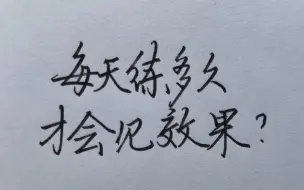 每天练多久
才会见效果？